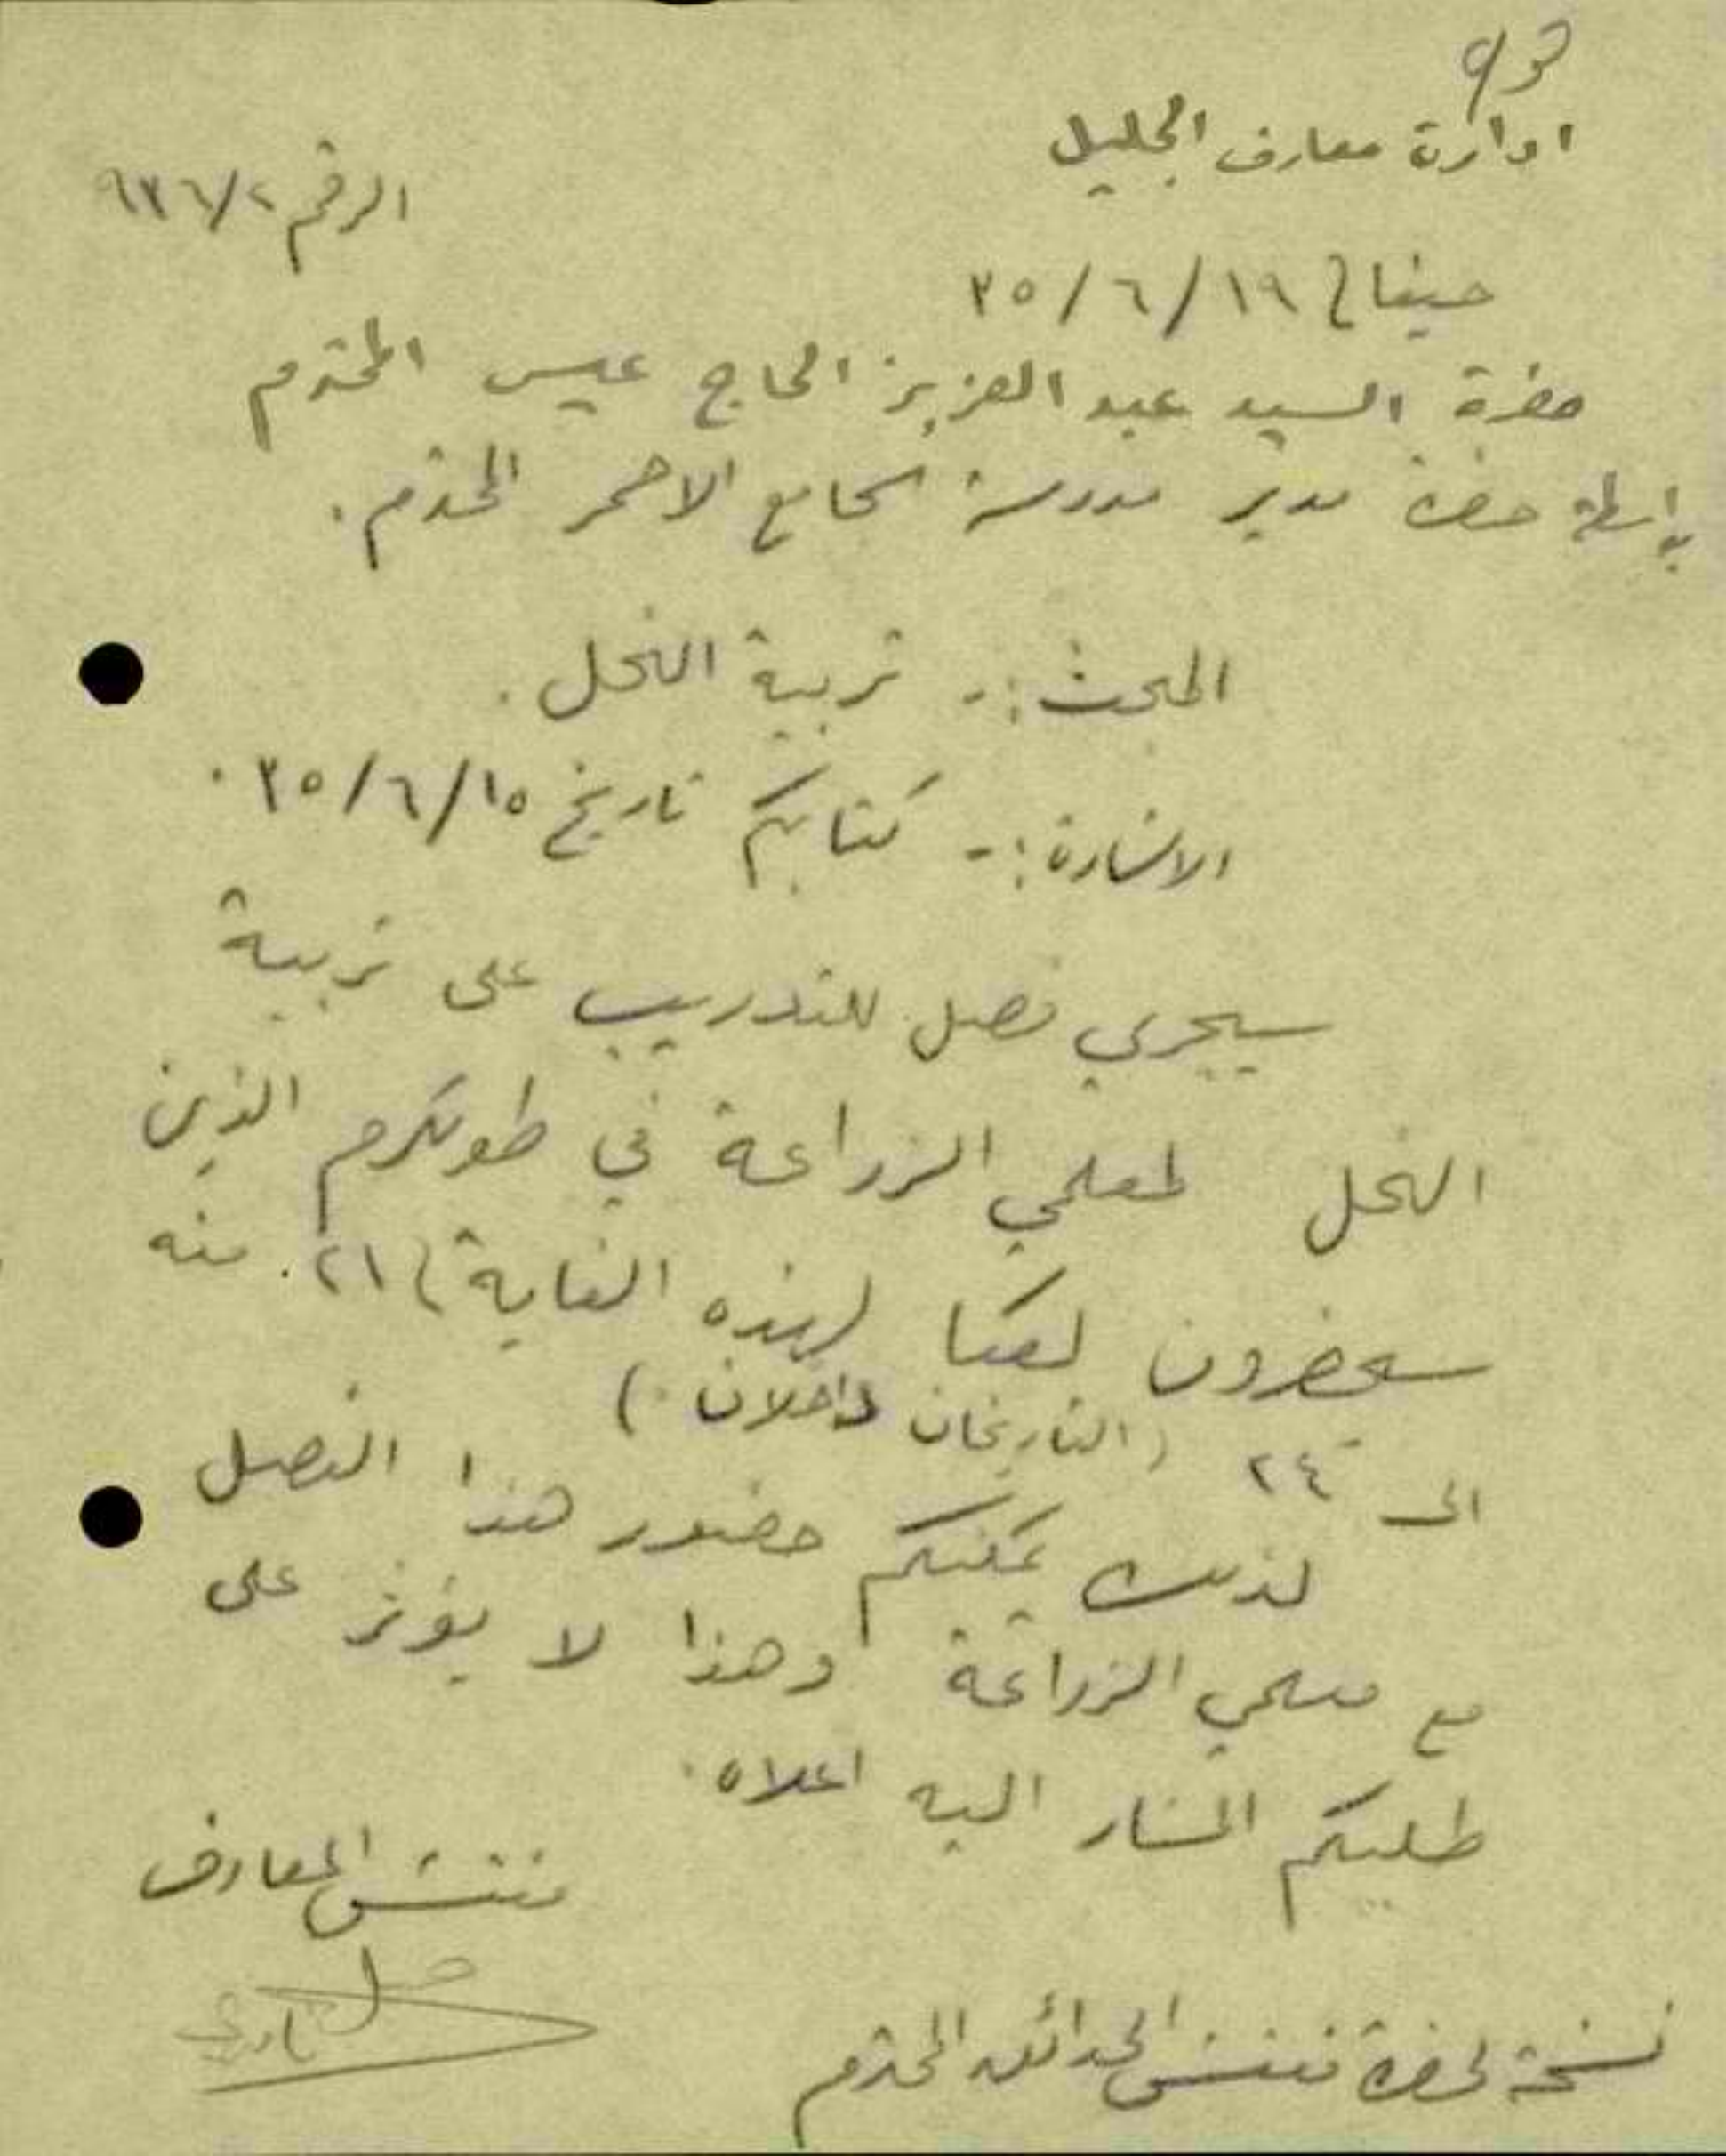 ادارة معارف الجليل
الرقم ٩٣٦/٢
حيفا في ١٩/٦/٣٥
حضرة السيد عبد العزيز الحاج عيسى المحترم
بواسطة حضرة مدير مدرسة الجامع الاحمر المحترم.
المبحث :- تربية النحل.
الاشارة :- كتابكم تاريخ ١٥/٦/٣٥.
سيجري فصل للتدريب على تربية
النحل لمعلمي الزراعة في طولكرم الذين
سيحضرون لعكا لهذه الغاية في ٢١ منه
الى ٢٤ (التاريخان داخلان)
لذلك يمكنكم حضور هذا الفصل
مع معلمي الزراعة وهذا لا يؤثر على
طلبكم المشار اليه اعلاه.
مفتش المعارف
نسخة لحضرة مفتش الحدائق المحترم